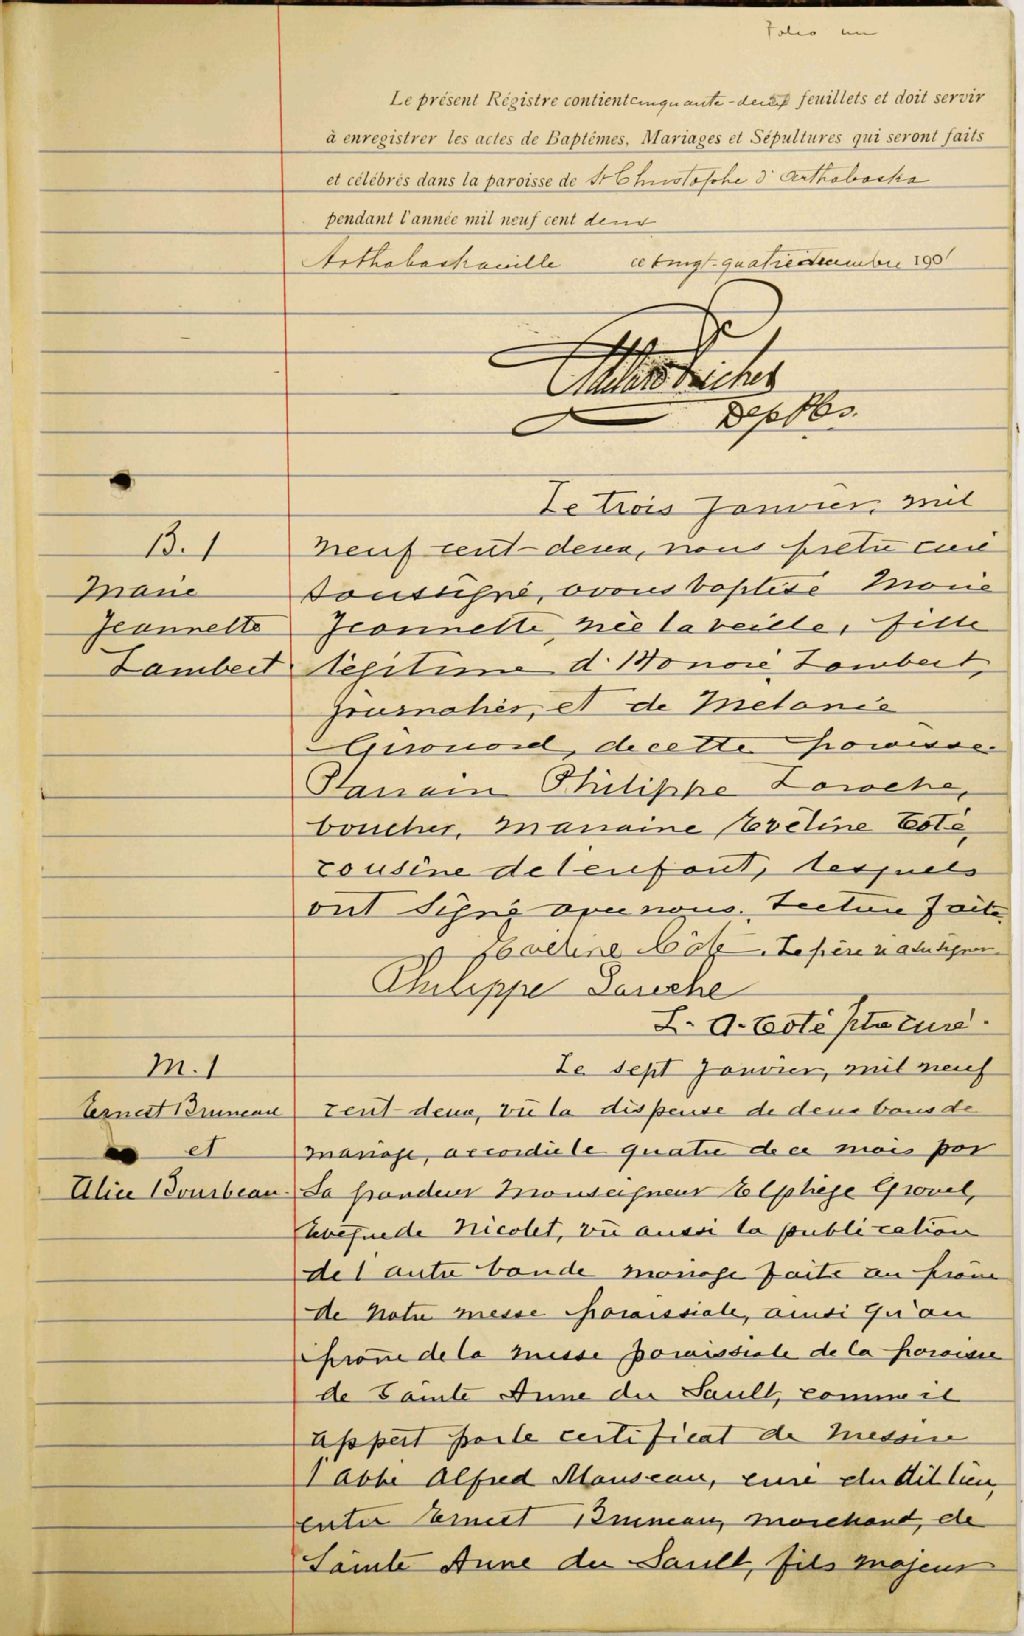 Folio un
Le présent Régistre contient cinquante-deux feuillets et doit servir
à enregistrer les actes de Baptêmes, Mariages et Sépultures qui seront faits
et célébrés dans la paroisse de St Christophe d'Arthabaska
pendant l'année mil neuf cent deux
Arthabaskaville ce vingt-quatre décembre 1901
Picher
Dep P.C.S.
Le trois Janvier, mil
B. 1 neuf cent-deux, nous prêtre curé
Marie soussigné, avons baptisé Marie
Jeannette Jeannette, née la veille, fille
Lambert légitime d'Honoré Lambert,
journalier, et de Mélanie
Girouard, de cette paroisse.
Parrain Philippe Laroche,
boucher, marraine Evéline Coté,
cousine de l'enfant, lesquels
ont signé avec nous. Lecture faite.
Evéline Côté. Le père n'a su signer.
Philippe Laroche
L. A. Coté ptre curé.
M. 1 Le sept Janvier, mil neuf
Ernest Bruneau cent-deux, vû la dispense de deux bans de
et mariage, accordée le quatre de ce mois par
Alice Bourbeau. Sa grandeur Monseigneur Elphège Gravel,
Evêque de Nicolet, vû aussi la publication
de l'autre ban de mariage faite au prône
de notre messe paroissiale, ainsi qu'au
prône de la messe paroissiale de la paroisse
de Sainte Anne du Sault, comme il
appert par le certificat de Messire
l'abbé Alfred Manseau, curé du dit lieu,
entre Ernest Bruneau, marchand, de
Sainte Anne du Sault, fils majeur